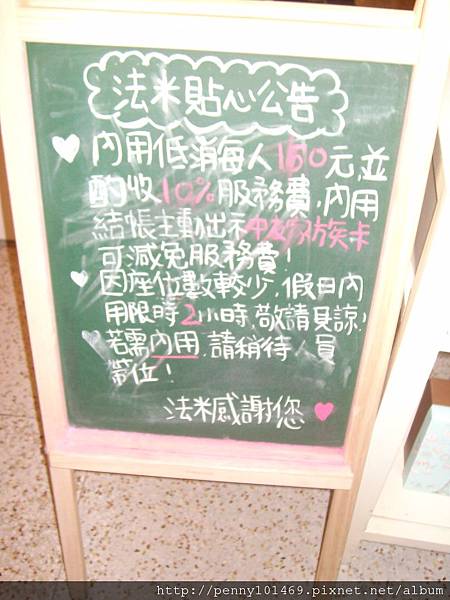 法米貼心公告
內用低消每人150元,並
酌收10%服務費.內用
結帳主動出示中友家族卡
可減免服務費!
因座位數較少,假日內
用限時2小時,敬請見諒!
若需內用,請稍待人員
帶位!
法米感謝您
http://penny101469.pixnet.net/album